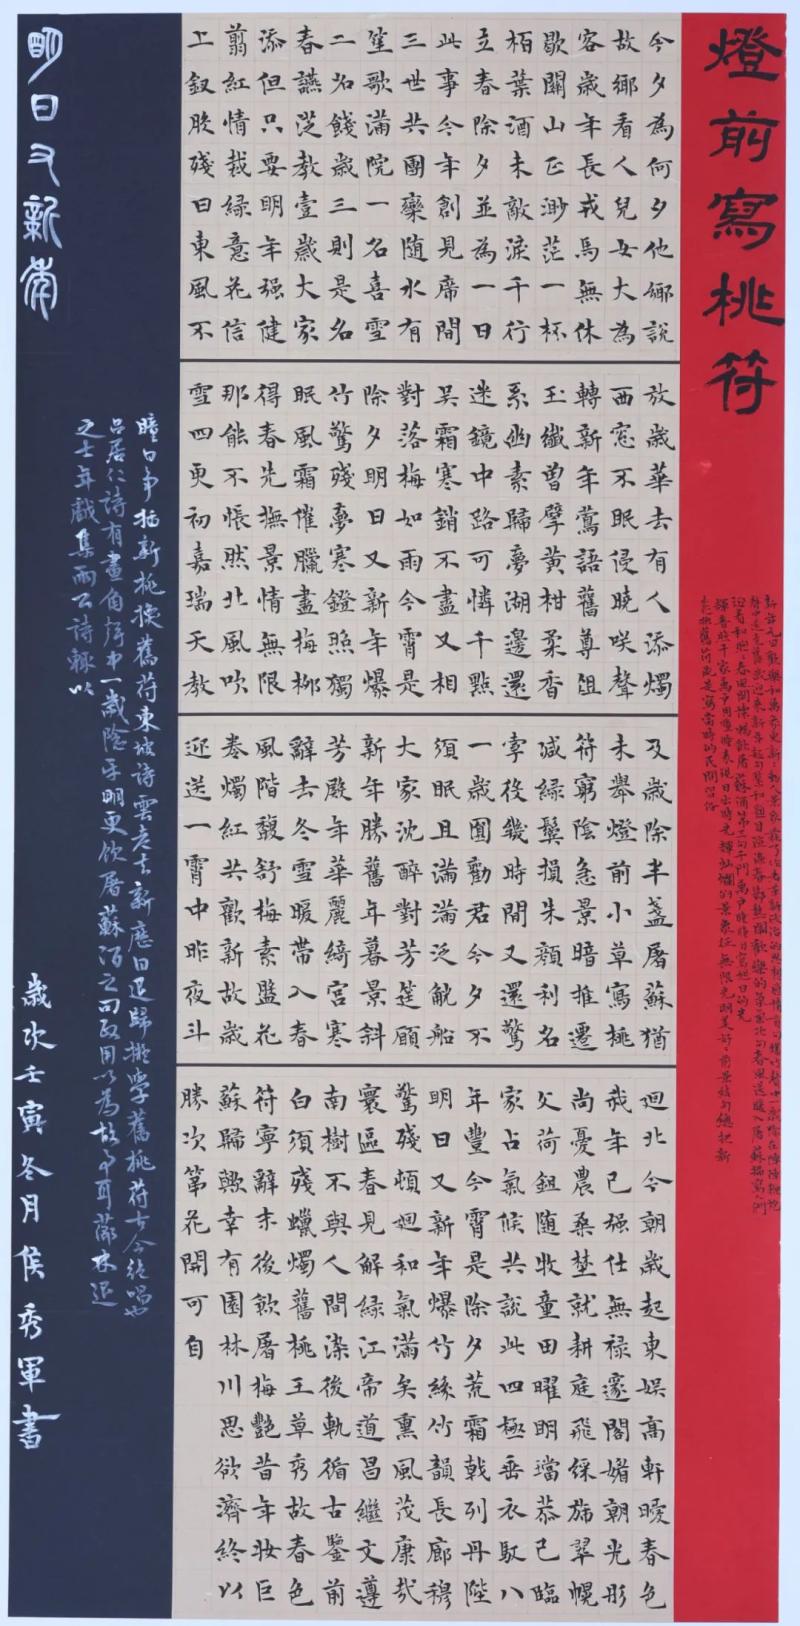 燈前寫桃符
今夕為何夕他鄉說
故鄉看人兒女大為
客歲年長戎馬無休
歇關山正渺茫一杯
栢葉酒未敵淚千行
立春除夕並為一日
此事今年創見席間
三世共團欒隨水有
笙歌滿院一名喜雪
二名餞歲三則是名
春讌從教壹歲大家
添但只要明年强健
翦紅情裁緑意花信
上釵股殘日東風不
放歲華去有人添燭
西窓不眠侵曉咲聲
轉新年鶯語舊尊俎
玉纖曽擘黄柑柔香
系幽素歸夢湖邊還
迷鏡中路可憐千點
吳霜寒銷不盡又相
對落梅如雨今霄是
除夕明日又新年爆
竹驚殘夢寒鐙照獨
眠風霜催臘盡梅柳
得春先撫景情無限
那能不悵然北風吹
雪四更初嘉瑞天教
及歲除半盞屠蘇猶
未舉燈前小草寫桃
符窮陰急景暗推遷
减緑鬢損朱顔利名
牽役幾時間又還驚
一歲圜勸君今夕不
須眠且滿滿泛觥船
大家沈醉對芳筵願
新年勝舊年暮景斜
芳殿年華麗綺宮寒
辭去冬雪暖帶入春
風階馥舒梅素盤花
卷燭紅共歡新故歲
迎送一霄中昨夜斗
廻北今朝歲起東娱高軒曖春色
我年已强仕無禄邃閣媚朝光彤
尚憂農桑埜就耕庭飛綵旆翠幌
父荷鉏随牧童田曜明璫恭己臨
家占氣候共說此四極垂衣馭八
年豐今霄是除夕荒霜戟列丹陛
明日又新年爆竹絲竹韻長廊穆
驚殘頓廻和氣滿矣熏風茂康哉
寰區春見解緑江帝道昌繼文遵
南樹不與人間染後軌循古鑒前
白須殘蠟燭舊桃王草秀故春色
符寧辭末後飲屠梅艷昔年妝巨
蘇歸歟幸有園林川思欲濟終以
勝次第花開可自
瞳日争插新桃換舊符東坡詩雲老去新應日退歸擬學舊桃符古今絶唱也
呂居仁詩有畫角聲中一歲除平明更飲屠蘇酒之句政用以為故事耳薌林退
之士年戲集兩公詩輒以
歲次壬寅冬月侯秀軍書
明日又新年